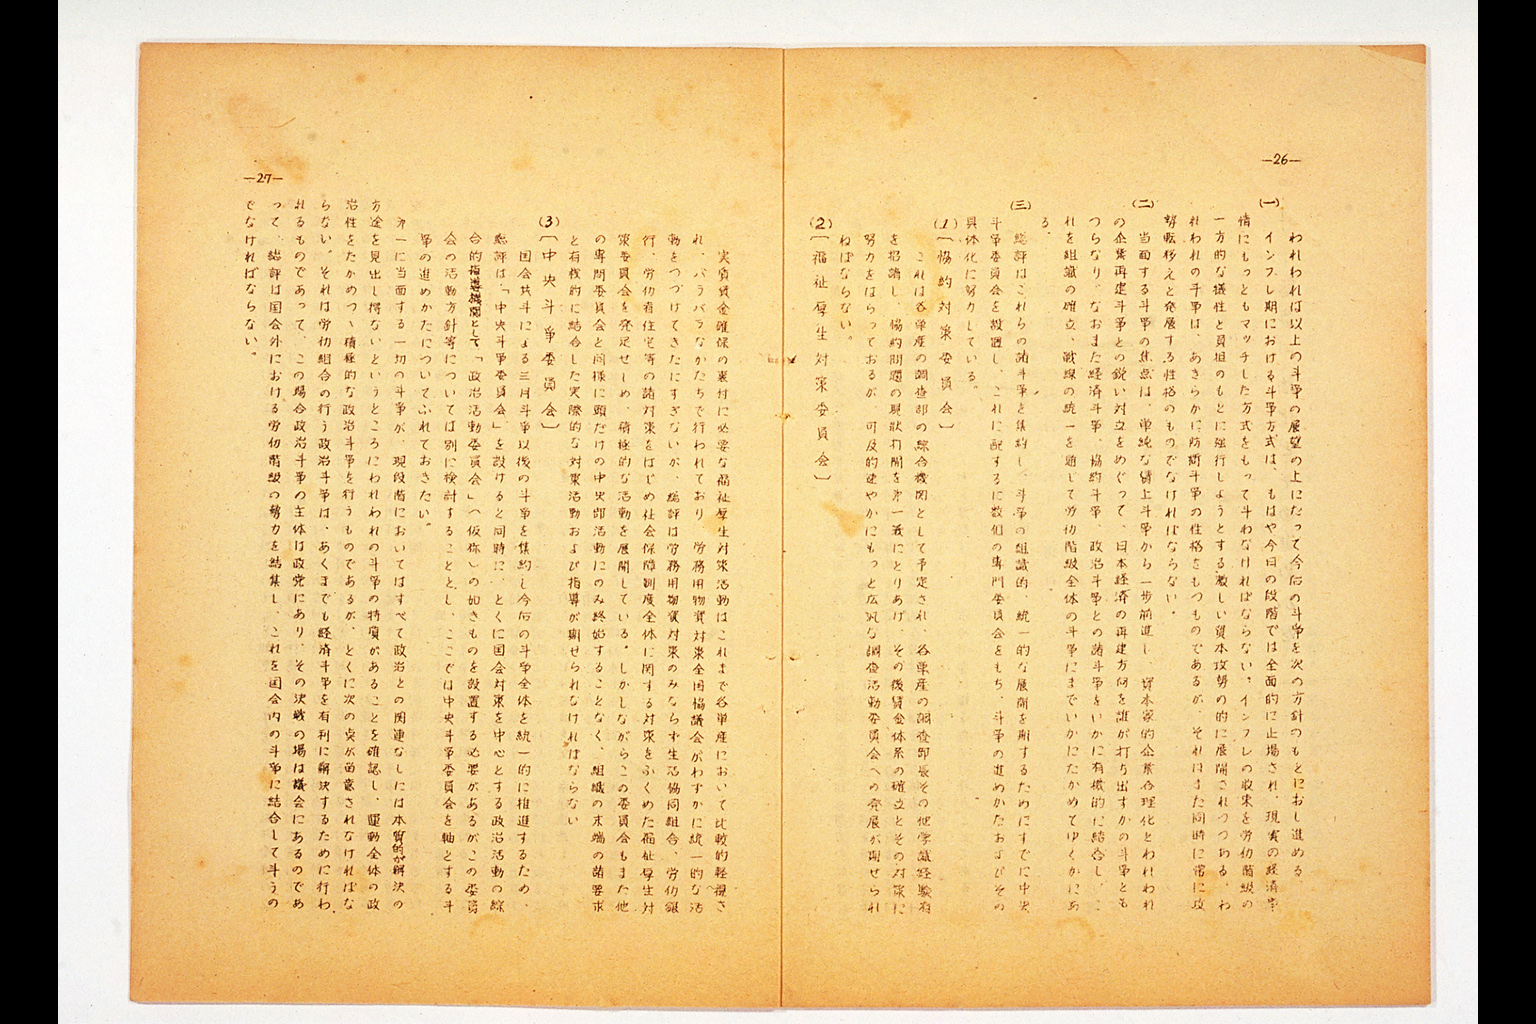 —26—
われわれは以上の斗争の展望の上にたって今后の斗争を次の方針のもとにおし進める
(一)
インフレ期における斗争方式は、もはや今日の段階では全面的に止揚され、現実の経済事
情にもっともマッチした方式をもって斗わなければならない。インフレの収束を労仂階級の
一方的な犠性と負担のもとに強行しようとする激しい資本攻勢の的に展開されつつある、わ
れわれの斗争は、あきらかに防衛斗争の性格をもつものであるが、それはまた同時に常に攻
勢転移えと発展する性格のものでなければならない。
(二)
当面する斗争の焦点は、単純な賃上斗争から一歩前進し、資本家的企業合理化とわれわれ
の企業再建斗争との鋭い対立をめぐって、日本経済の再建方何を誰が打ち出すかの斗争とも
つらなり、なおまた経済斗争、協約斗争、政治斗争との諸斗争をいかに有機的に結合し、こ
れを組織の確立、戦線の統一を通して労仂階級全体の斗争にまでいかにたかめてゆくかにあ
る。
(三)
総評はこれらの諸斗争を集約し、斗争の組識的、統一的な展開を期するためにすでに中央
斗争委員会を設置し、これに配するに数個の専門委員会をもち、斗争の進めかたおよびその
具体化に努力している。
(1)〔協約対策委員会〕
これは各単産の調査部の綜合機関として予定され、各単産の調査部長その他学識経験者
を招請し、協約問題の現狀打開を第一義にとりあげ、その後賃金体系の確立とその対策に
努力をはらっておるが、可及的速やかにもっと広汎な調査活動委員会への発展が期せられ
ねばならない。
(2)〔福祉厚生対策委員会〕
実質賃金確保の裏付に必要な福祉厚生対策活動はこれまで各単産において比較的軽視さ
れ、バラバラなかたちで行われており、労務用物資対策全国協議会がわずかに統一的な活
動をつづけてきたにすぎないが、総評は労務用物資対策のみならず生活協同組合、労仂銀
行、労仂者住宅等の諸対策をはじめ社会保障制度全体に関する対策をふくめた福祉厚生対
策委員会を発足せしめ、積極的な活動を展開している。しかしながらこの委員会もまた他
の専門委員会と同様に頭だけの中央部活動にのみ終始することなく、組織の末端の諸要求
と有機的に結合した実際的な対策活動および指導が期せられなければならない
(3)〔中央斗争委員会〕
国会共斗による三月斗争以後の斗争を集約し今后の斗争全体を統一的に推進するため、
総評は、「中央斗争委員会」を設けると同時に、とくに国会対策を中心とする政治活動の綜
合的指導機関として「政治活動委員会」(仮称)の如きものを設置する必要があるがこの委員
会の活動方針等については別に検討することとし、ここでは中央斗争委員会を軸とする斗
争の進めかたについてふれておきたい。
第一に当面する一切の斗争が、現段階においてはすべて政治との関連なしには本質的な解決の
方途を見出し得ないというところにわれわれの斗争の特質があることを確認し、運動全体の政
治性をたかめつゝ積極的な政治斗争を行うものであるが、とくに次の点が留意されなければな
らない。それは労仂組合の行う政治斗争は、あくまでも経済斗争を有利に解決するために行わ
れるものであって、この場合政治斗争の主体は政党にあり、その決戦の場は議会にあるのであ
って、総評は国会外における労仂階級の勢力を結集し、これを国会内の斗争に結合して斗うの
でなければならない。
—27—